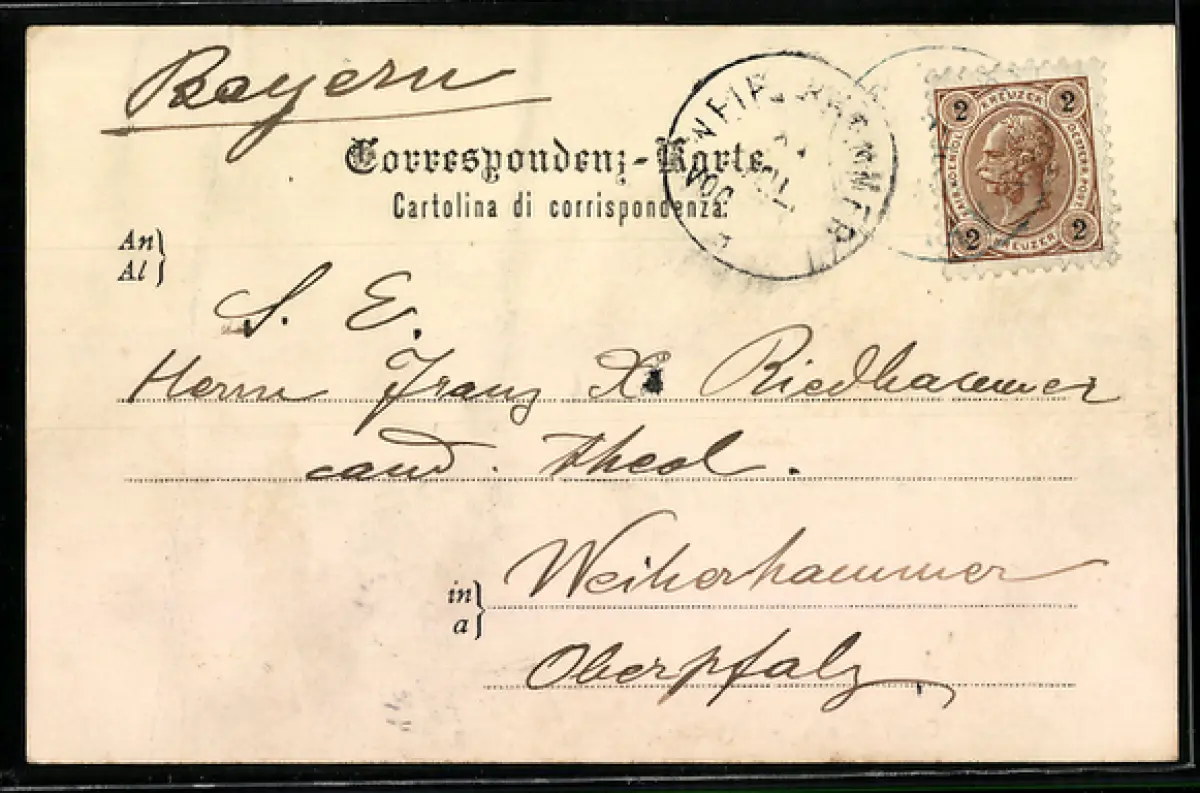 Bayern
Correspondenz-Karte.
Cartolina di corrispondenza.
2 KREUZER 2
2 KREUZER 2
An
Al
S. E.
Herrn Franz X. Riedhammer
cand. theol.
in
a
Weiherhammer
Oberpfalz